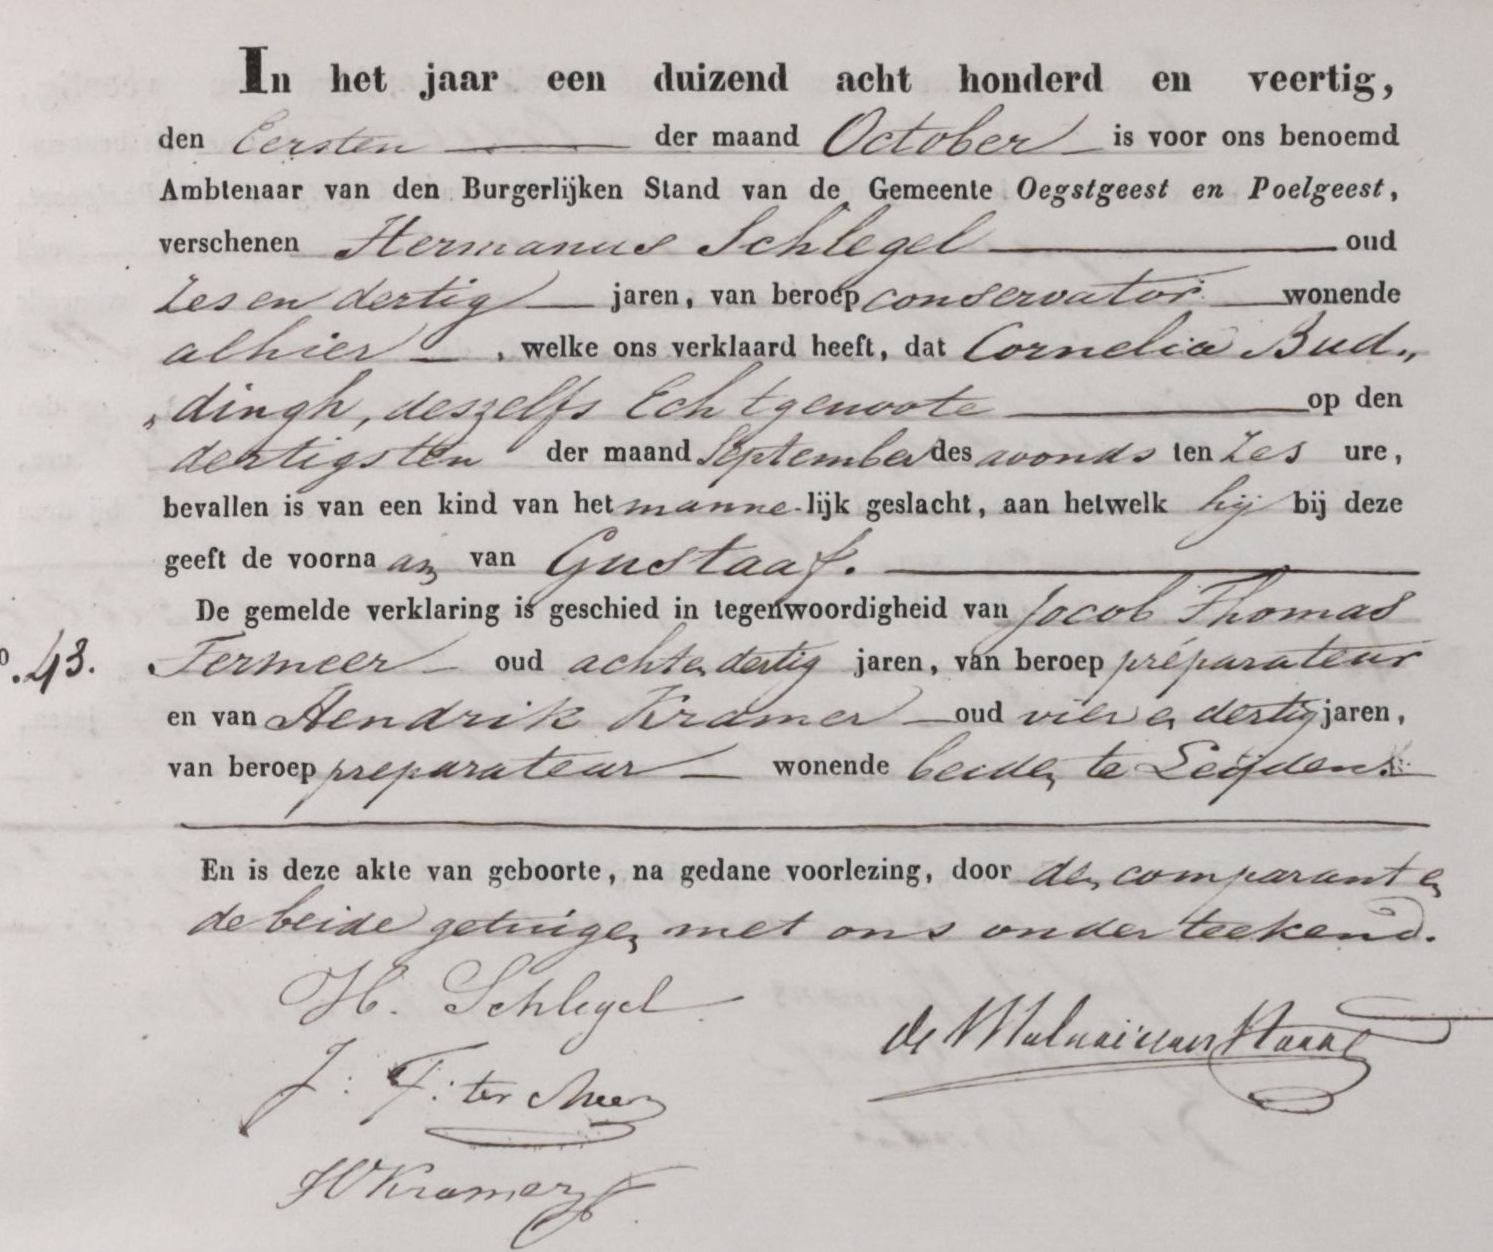 In het jaar een duizend acht honderd en veertig,
den Eersten der maand October is voor ons benoemd
Ambtenaar van den Burgerlijken Stand van de Gemeente Oegstgeest en Poelgeest,
verschenen Hermanus Schlegel oud
Zes en dertig jaren, van beroep conservator wonende
alhier, welke ons verklaard heeft, dat Cornelia Bud„
„dingh, deszelfs Echtgenoote op den
dertigsten der maand September des avonds ten Zes ure,
bevallen is van een kind van het manne-lijk geslacht, aan hetwelk hij bij deze
geeft de voorna am van Gustaaf.
De gemelde verklaring is geschied in tegenwoordigheid van Jacob Thomas
o.43. Termeer oud acht en dertig jaren, van beroep préparateur
en van Hendrik Kramer oud vier en dertig jaren,
van beroep preparateur wonende beiden te Leijden.
En is deze akte van geboorte, na gedane voorlezing, door den comparant en
de beide getuigen met ons onderteekend.
H. Schlegel
J: T: ter Meer
H Kramer